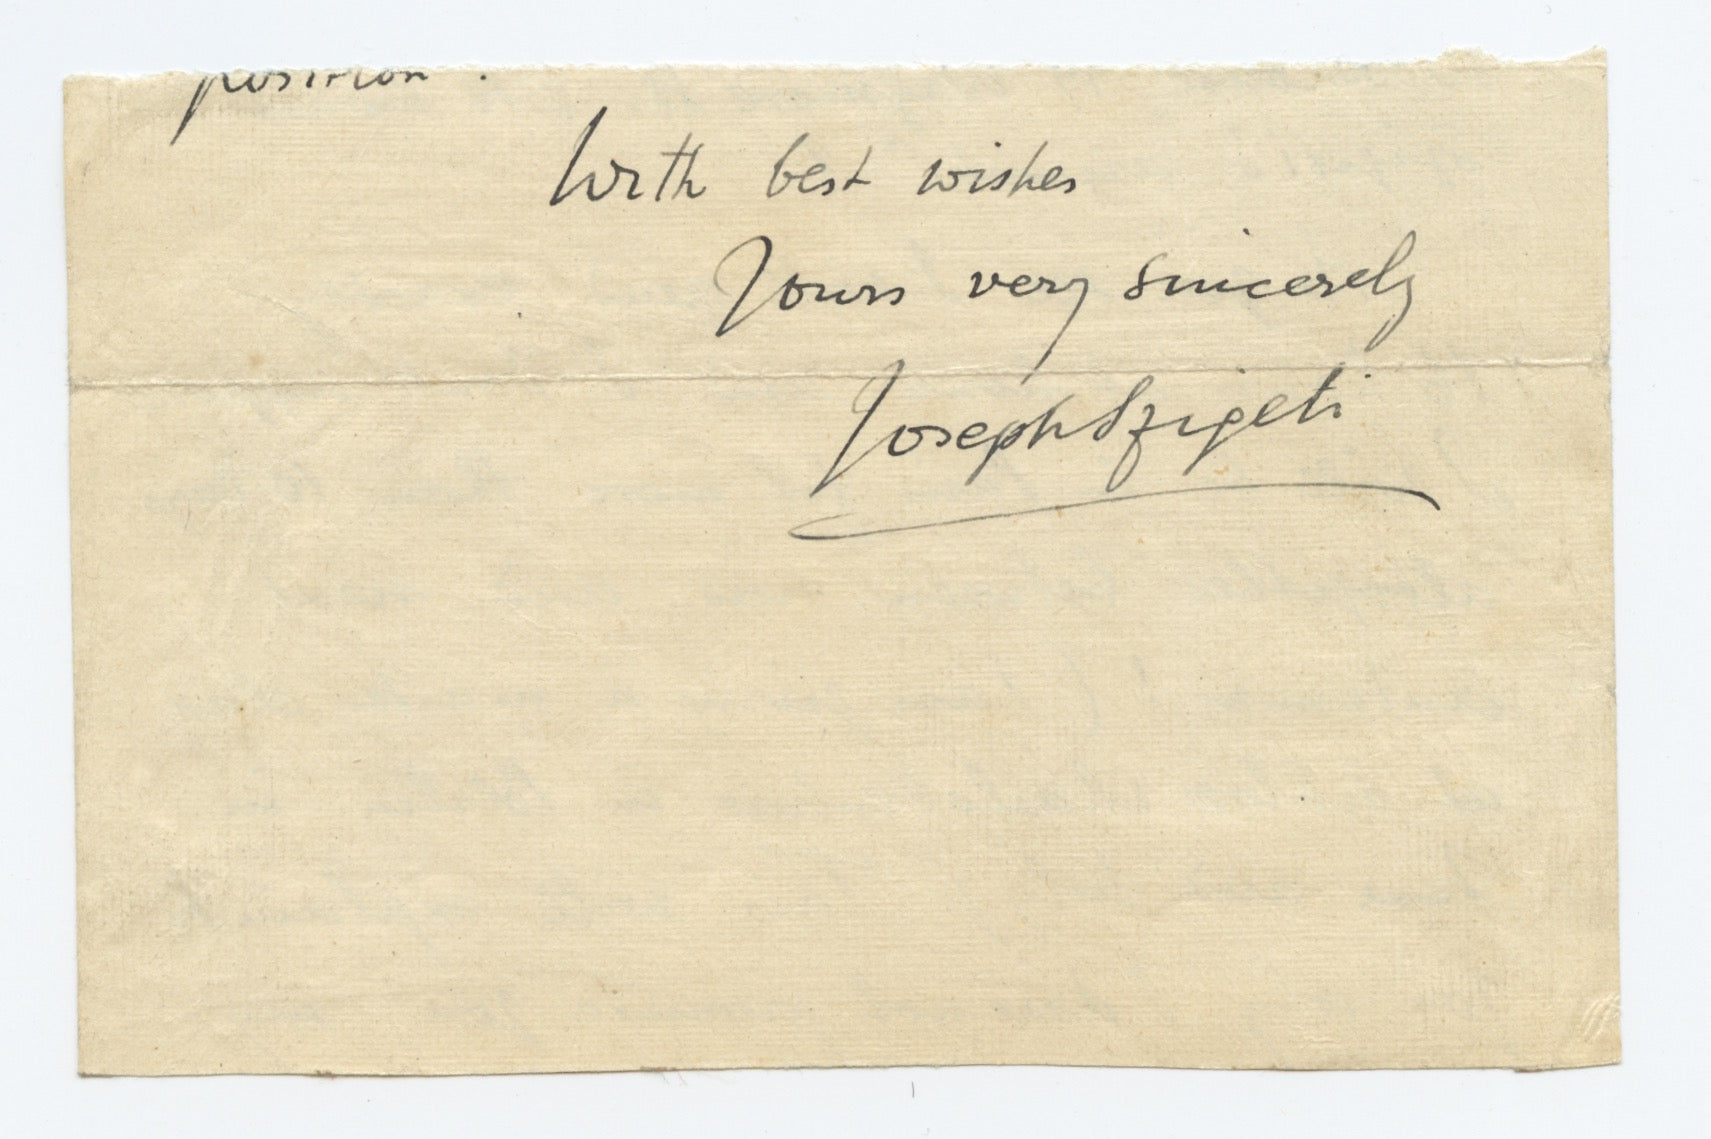 position.
With best wishes
Yours very sincerely
Joseph Szigeti